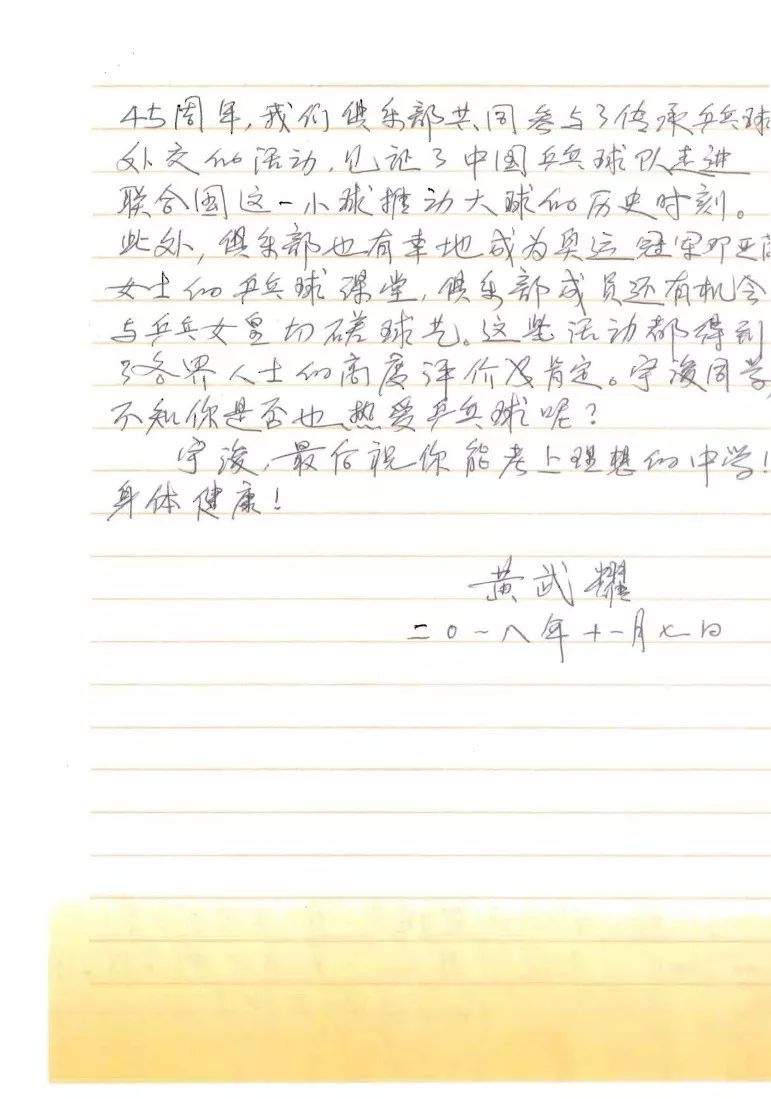 45周年,我们俱乐部共同参与了传承乒乓球
外交的活动,见证了中国乒乓球队走进
联合国这一小球推动大球的历史时刻。
此外,俱乐部也有幸地成为奥运冠军邓亚萍
女士的乒乓球课堂,俱乐部成员还有机会
与乒乓女皇切磋球艺。这些活动都得到
了各界人士的高度评价及肯定。宇浚同学,
不知你是否也热爱乒乓球呢?
宇浚,最后祝你能考上理想的中学!
身体健康!
黄武耀
二0一八年十一月七日